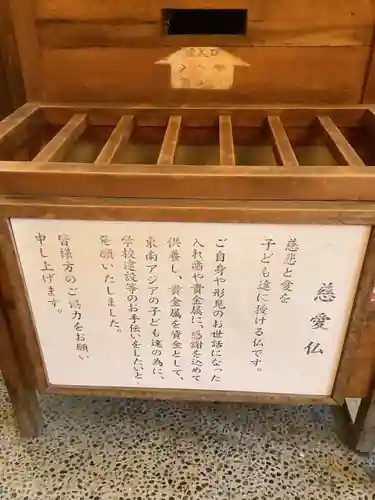 慈愛仏
慈悲と愛を
子ども達に授ける仏です。
ご自身や形見のお世話になった
入れ歯や貴金属に、感謝を込めて
供養し、貴金属を資金として、
東南アジアの子ども達の為に、
学校建設等のお手伝いをしたいと、
発願いたしました。
皆様方のご協力をお願い
申し上げます。